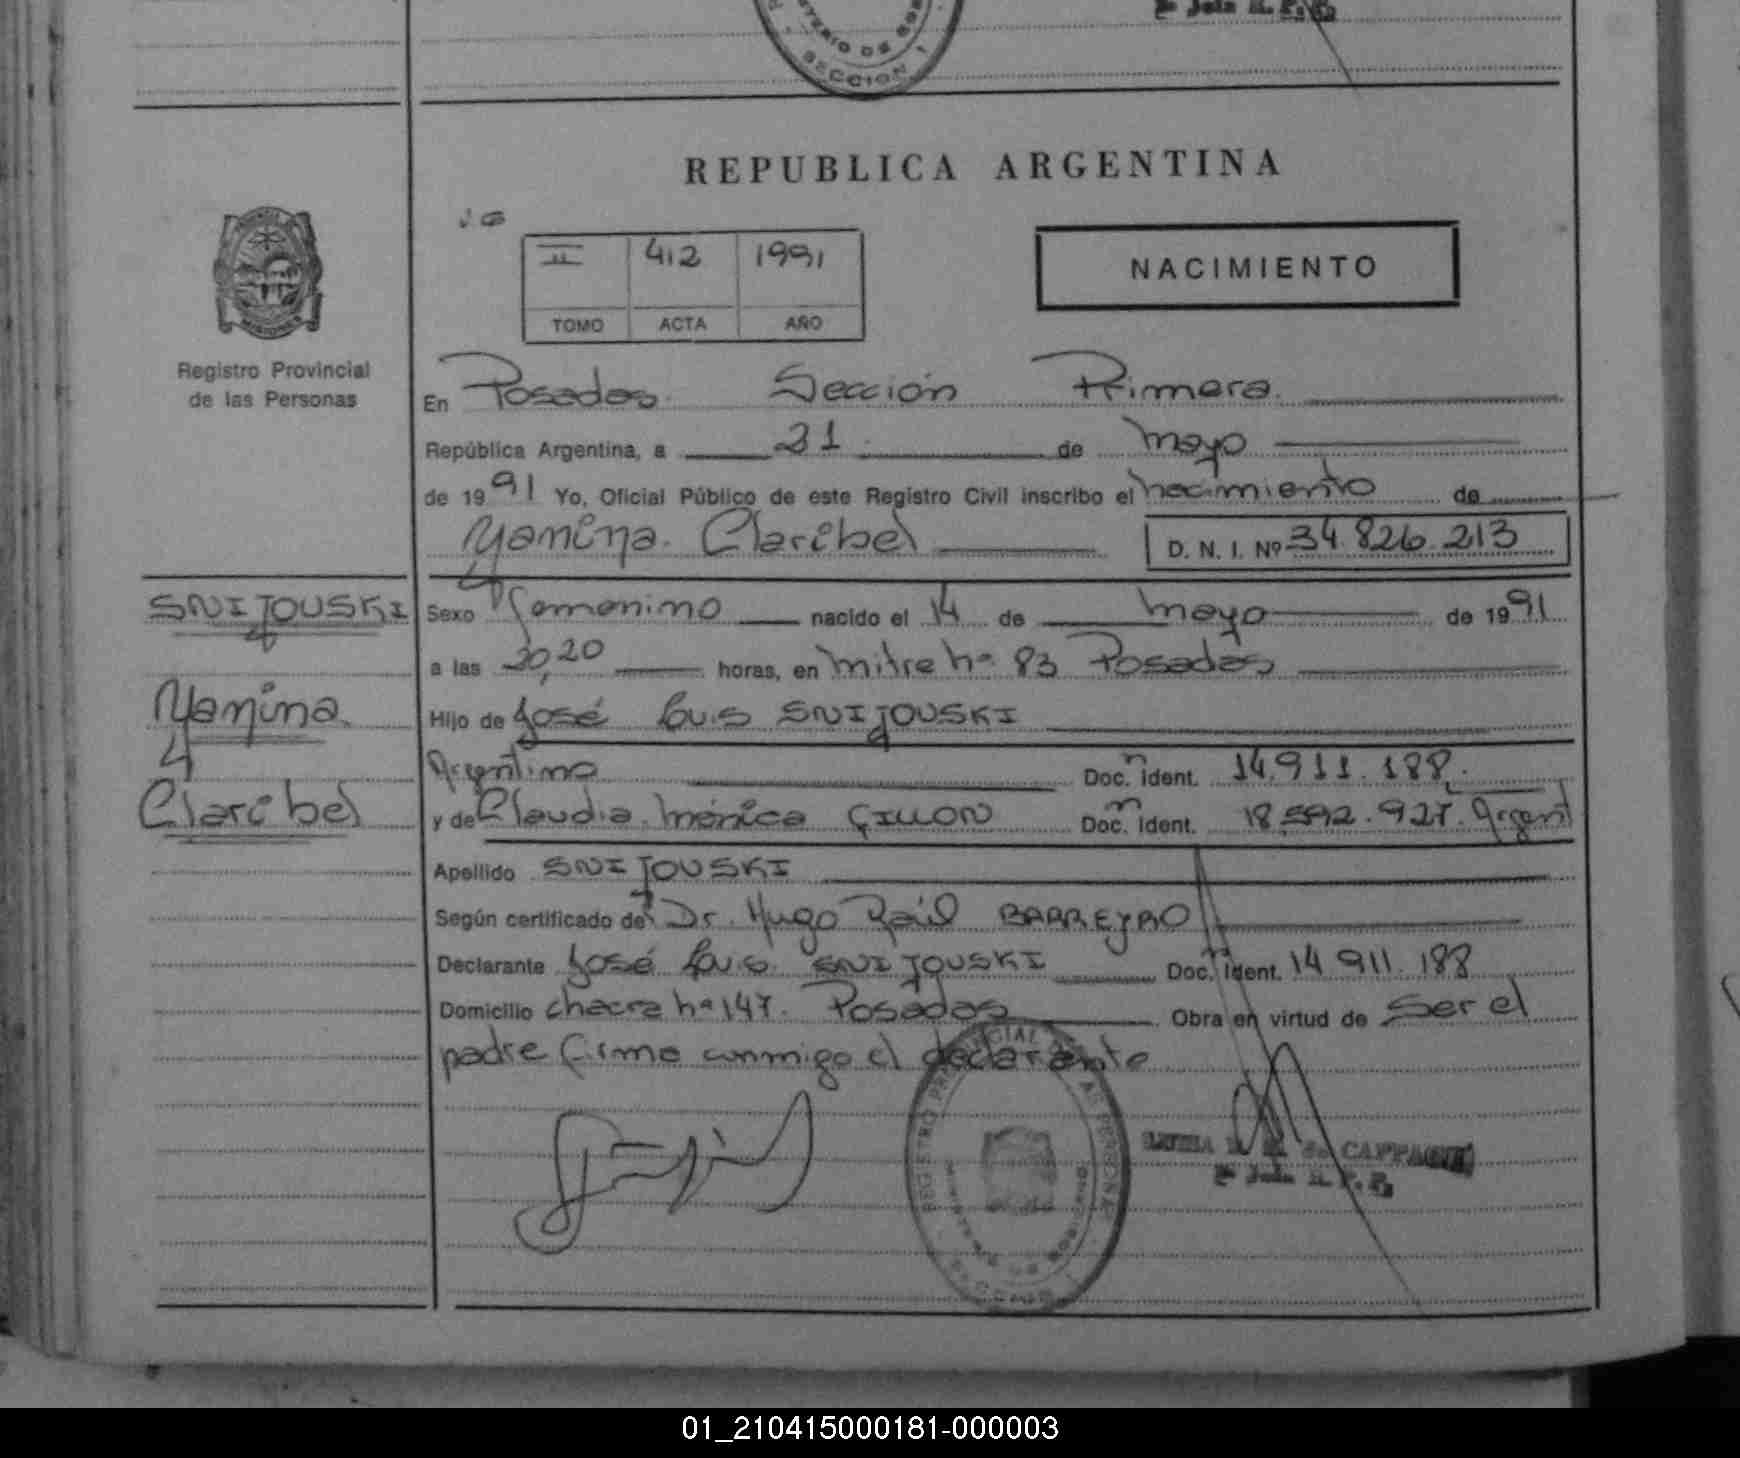 REPUBLICA ARGENTINA
II 412 1991
TOMO ACTA AÑO
NACIMIENTO
MISIONES
Registro Provincial
de las Personas
En Posadas Sección Primera
República Argentina, a 31 de mayo
de 1991 Yo, Oficial Público de este Registro Civil inscribo el nacimiento de
Yanina Claribel D. N. I. Nº 34.826.213
SNIJOUSKI
Yanina
Claribel
Sexo Femenino nacido el 14 de mayo de 1991
a las 20,20 horas, en mitre nº 83 Posadas
Hijo de José Luis SNIJOUSKI
Argentino Doc. Ident. 14.911.188.
y de Claudia Mónica GILLON Doc. Ident. 18.592.927. Argent
Apellido SNIJOUSKI
Según certificado del Dr. Hugo Raúl BARREYRO
Declarante José Luis SNIJOUSKI Doc. Ident. 14.911.188
Domicilio chacra nº 147. Posadas Obra en virtud de Ser el
padre firma conmigo el declarante
de CAPPAGLI
Jefe R. P. P.
01_210415000181-000003